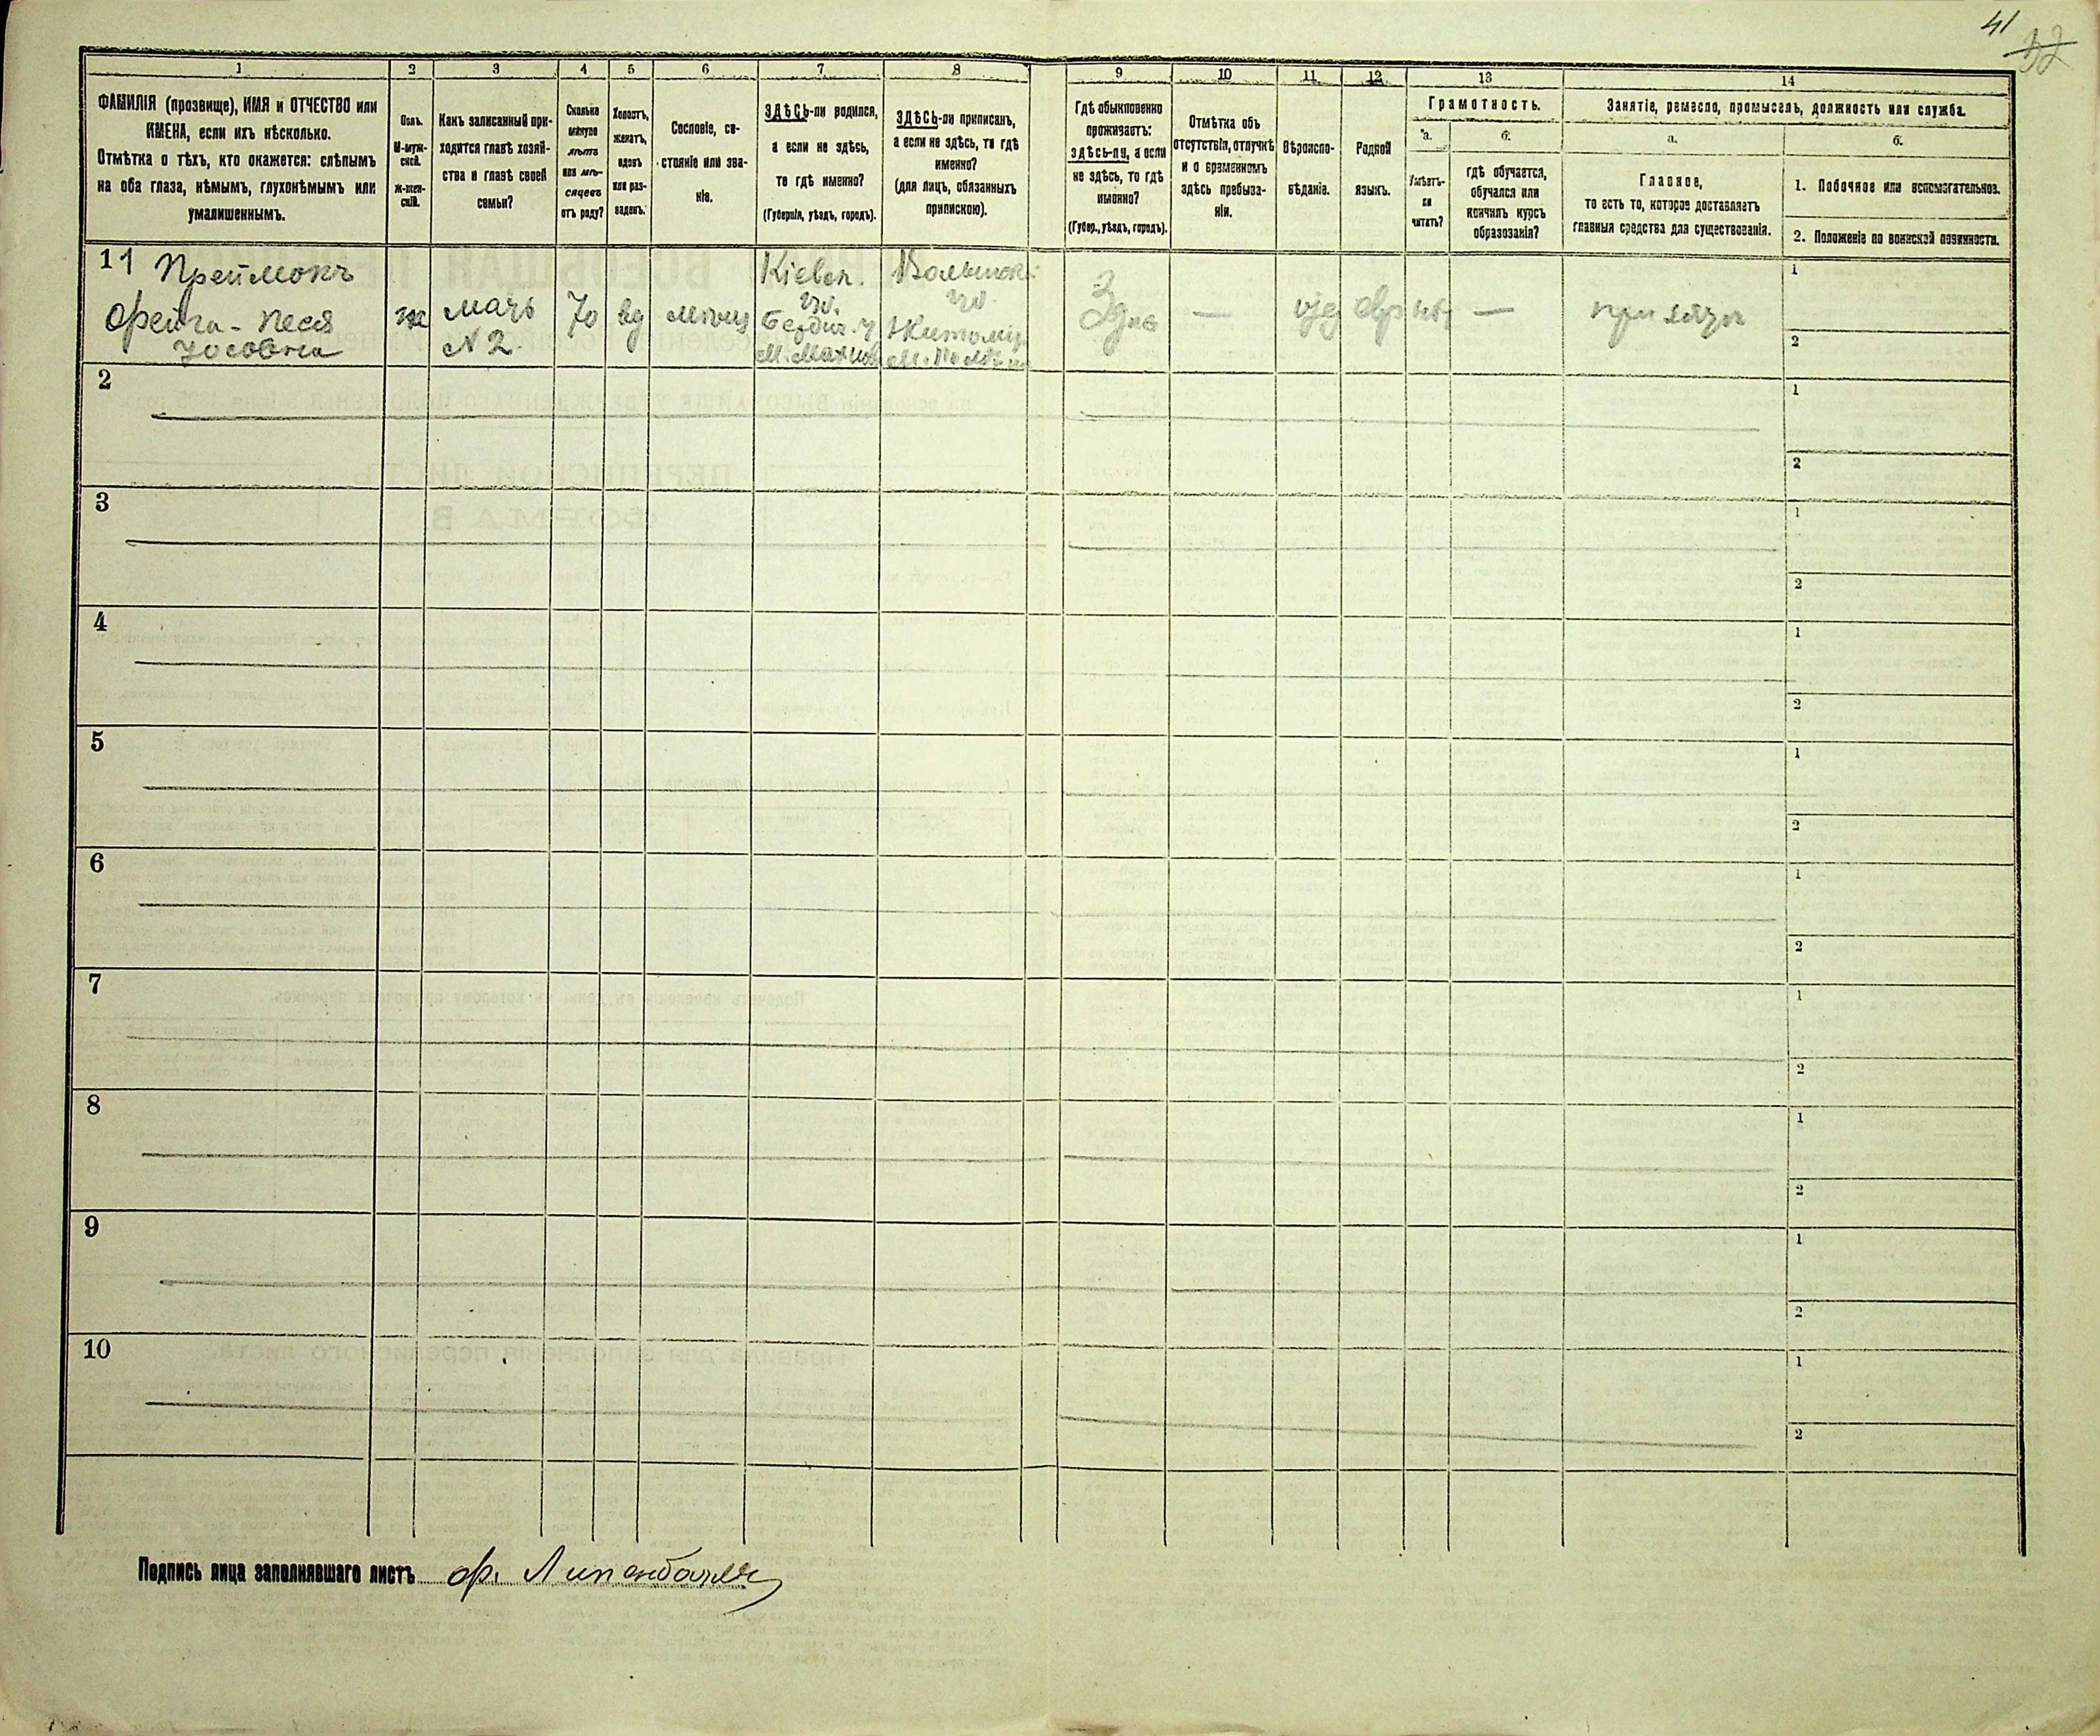 41
52
1
2
3
4
5
6
7
8
9
10
11
12
13
14
ФАМИЛІЯ (прозвище), ИМЯ и ОТЧЕСТВО или
ИМЕНА, если ихъ нѣсколько.
Отмѣтка о тѣхъ, кто окажется: слѣпымъ
на оба глаза, нѣмымъ, глухонѣмымъ или
умалишеннымъ.
Полъ.
М-муж-
ской.
Ж-жен-
скій.
Какъ записанный при-
ходится главѣ хозяй-
ства и главѣ своей
семьи?
Сколько
минуло
лѣтъ
или мѣ-
сяцевъ
отъ роду?
Холостъ,
женатъ,
вдовъ
или раз-
веденъ.
Сословіе, со-
стояніе или зва-
ніе.
ЗДѢСЬ-ли родился,
а если не здѣсь,
то гдѣ именно?
(Губернія, уѣздъ, городъ).
ЗДѢСЬ-ли приписанъ,
а если не здѣсь, то гдѣ
именно?
(для лицъ, обязанныхъ
припискою).
Гдѣ обыкновенно
проживаетъ:
здѣсь-ли, а если
не здѣсь, то гдѣ
именно?
(Губер., уѣздъ, городъ).
Отмѣтка объ
отсутствіи, отлучкѣ
и о временномъ
здѣсь пребыва-
ніи.
Вѣроиспо-
вѣданіе.
Родной
языкъ.
Грамотность.
а.
Умѣетъ-
ли
читать?
б.
гдѣ обучается,
обучался или
кончилъ курсъ
образованія?
Занятіе, ремесло, промыселъ, должность или служба.
а.
Главное,
то есть то, которое доставляетъ
главныя средства для существованія.
б.
1. Побочное или вспомагательное.
2. Положеніе по воинской повинности.
11 Преймокъ
Фейга - Песя
Іосовна
ж
мать
N 2
70
вд
Кіевск.
гу.
Бердич. у
М. Махнов
Волынск.
гу.
Житомір
Здѣс
—
іуд
евр
нѣт
—
1
2
2
1
2
3
1
2
4
1
2
5
1
2
6
1
2
7
1
2
8
1
2
9
1
2
10
1
2
Подпись лица заполнявшаго листъ